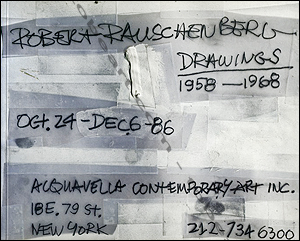 ROBERT RAUSCHENBERG
DRAWINGS
1958-1968
OCT. 24-DEC. 6-86
ACQUAVELLA CONTEMPORARY ART INC.
18E. 79 St.
NEW YORK
212-734 6300